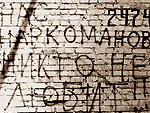 НАС 2424
НАРКОМАНОВ
НИКТО НЕ
ЛЮБИТ